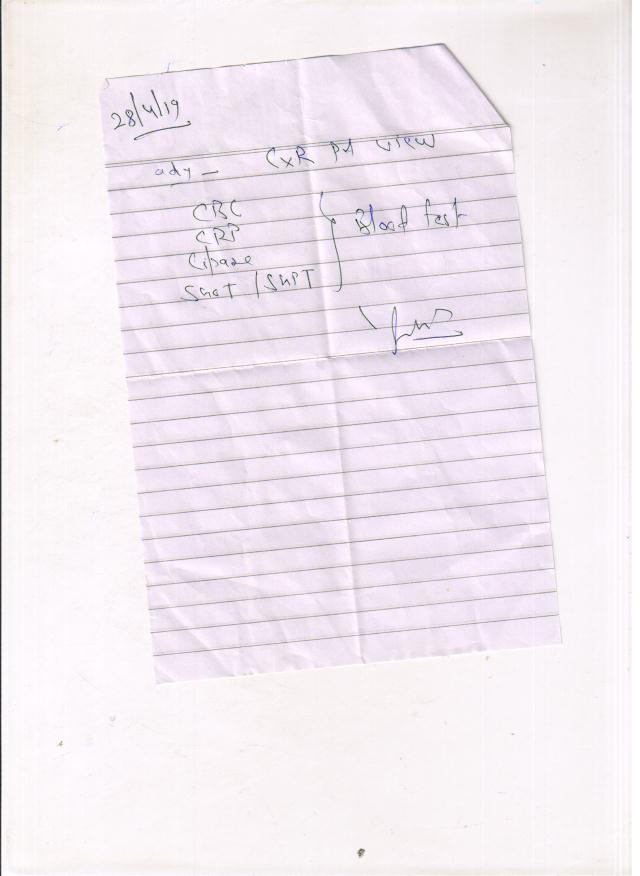 28/4/19
adv - CXR PA view
CBC
CRP } Blood test
Lipase
SGOT / SGPT